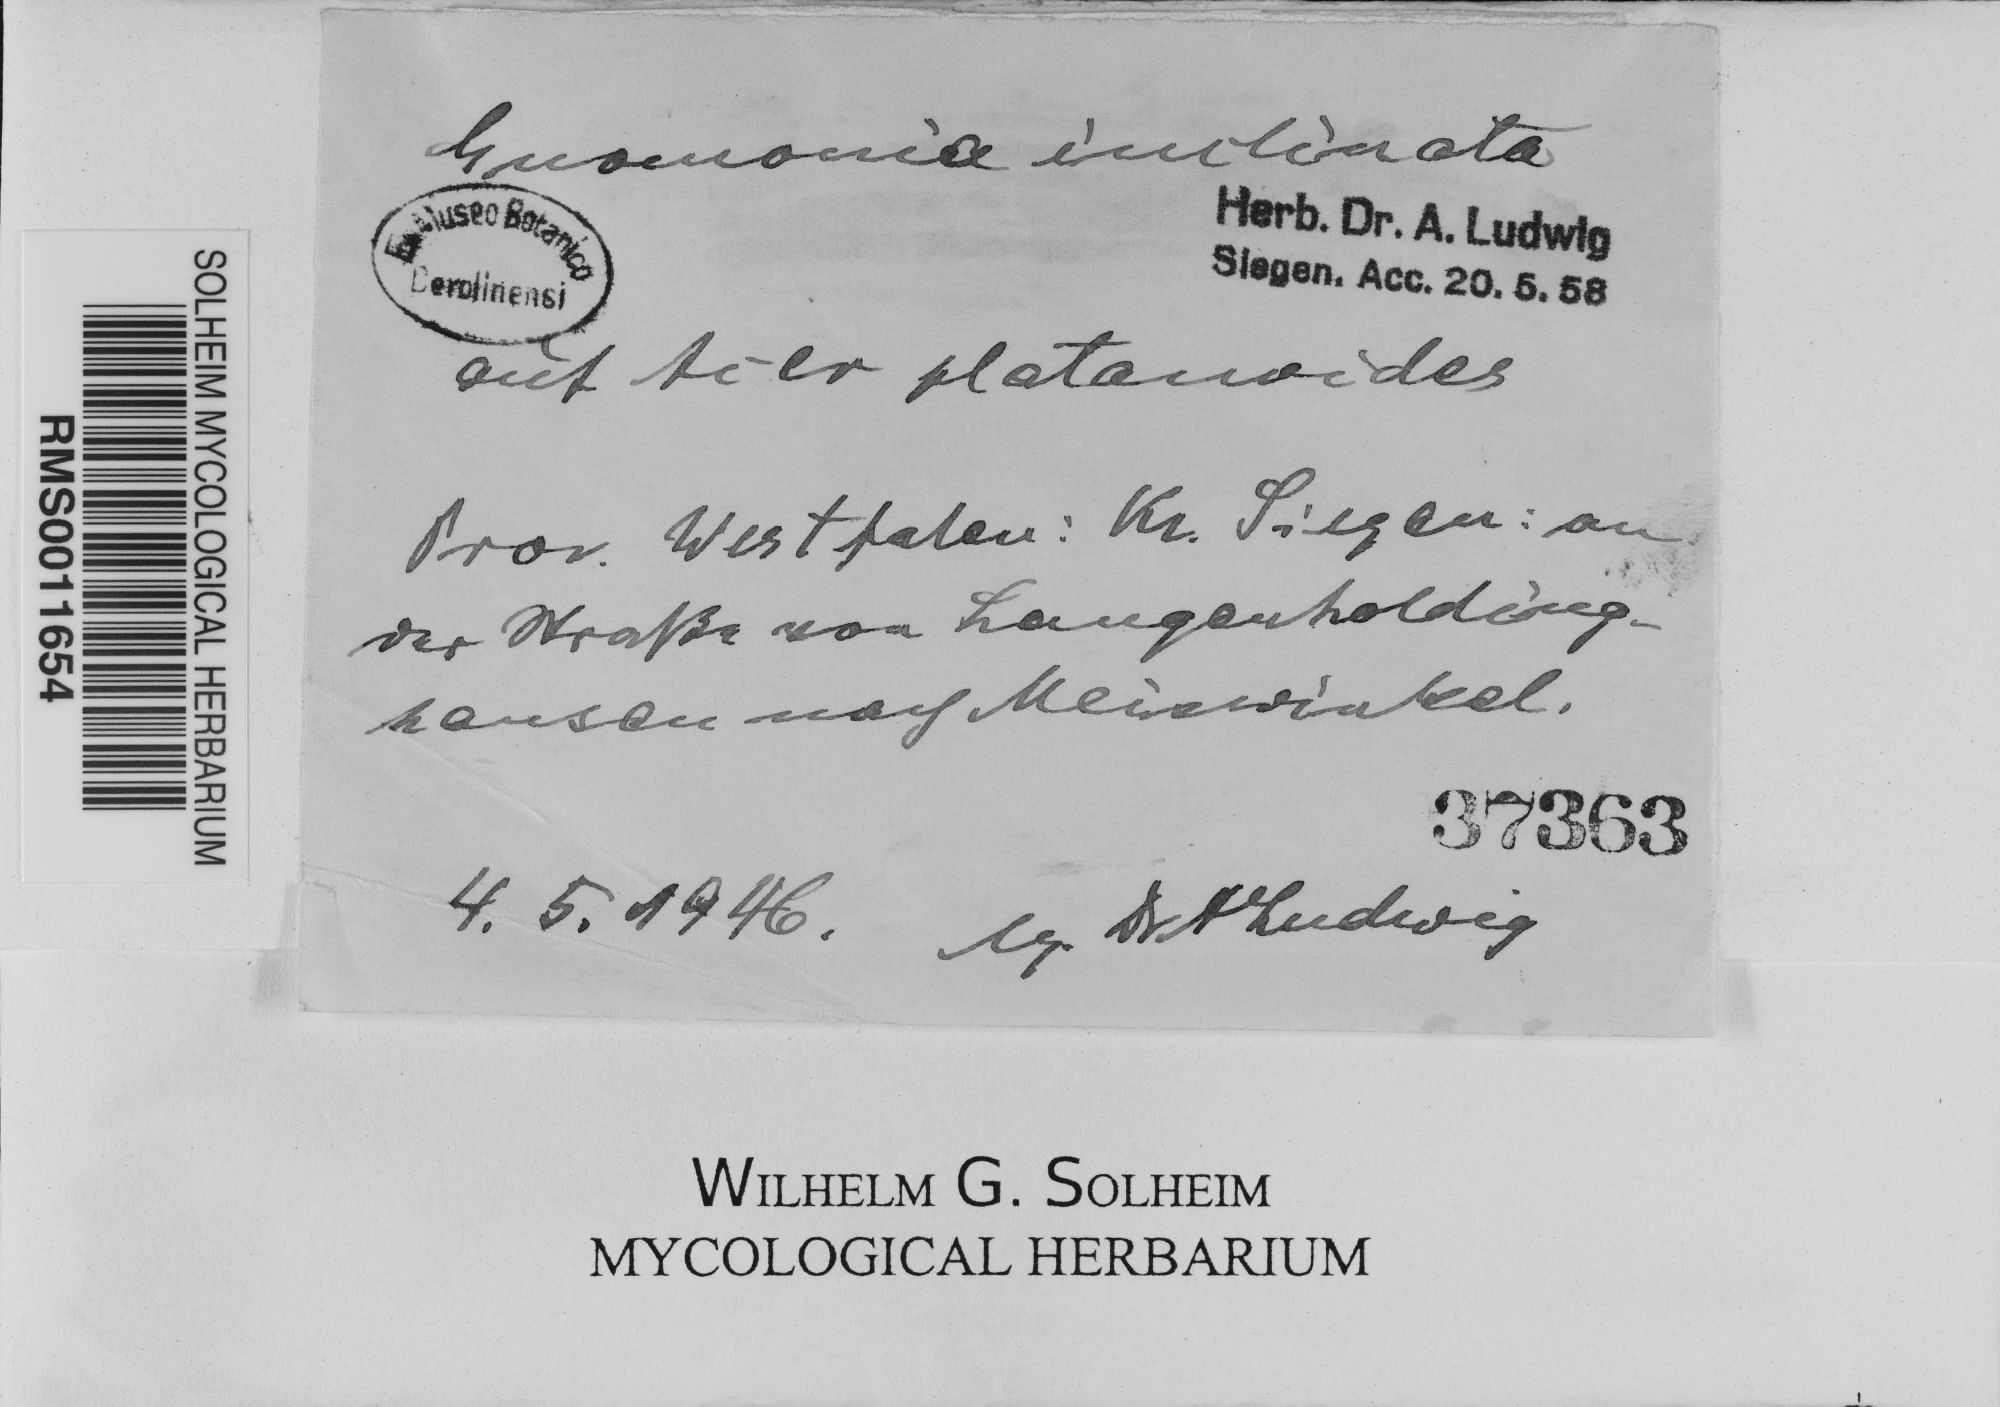 Gnomonia inclinata
Ex Museo Botanico
Berolinensi
Herb. Dr. A. Ludwig
Siegen. Acc. 20. 5. 58
auf Acer platanoides
Prov. Westfalen: Kr. Siegen: an
der Straße von Langenholding-
hausen nach Meiswinkel.
37363
4. 5. 1946. lg. Dr A Ludwig
SOLHEIM MYCOLOGICAL HERBARIUM
RMS0011654
WILHELM G. SOLHEIM
MYCOLOGICAL HERBARIUM